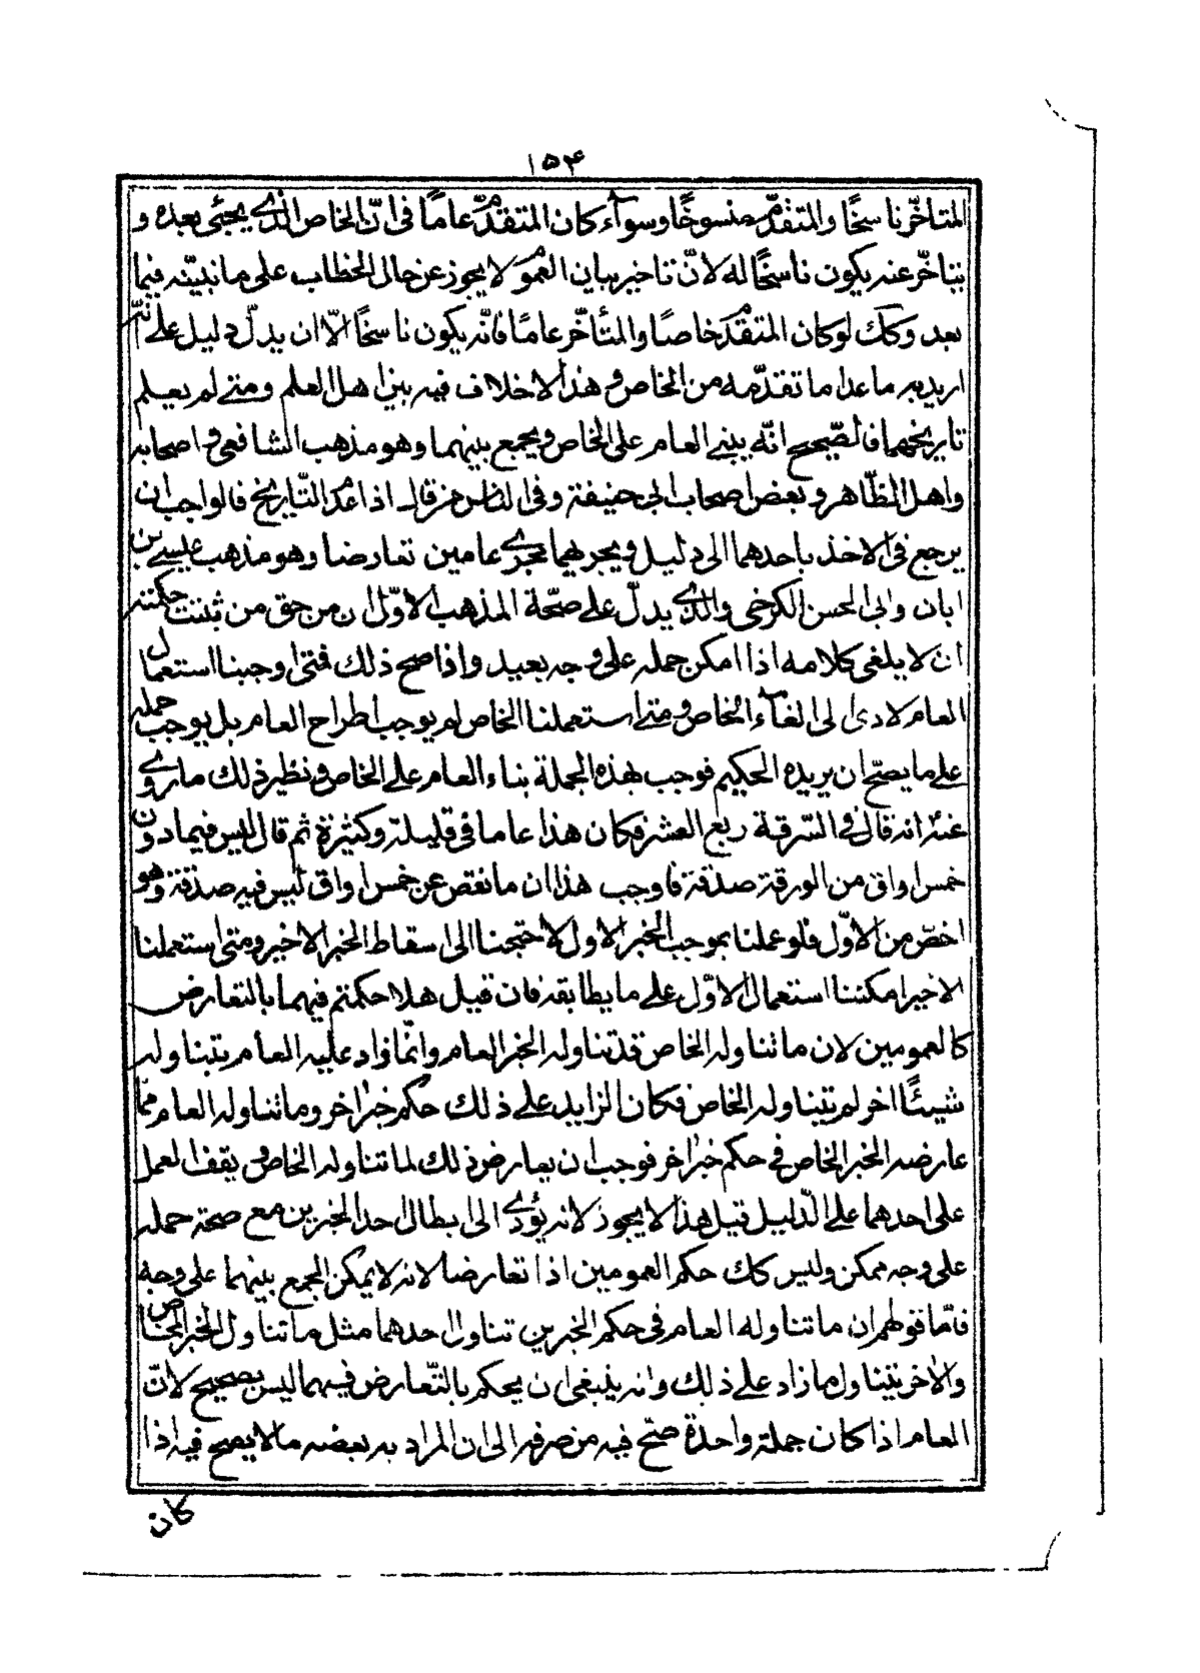 ١٥۴
المتاخّر ناسخًا والمتقدّم منسوخًا وسوآء كان المتقدّم عامًا فى انّ الخاص الذى يجئى بعده و
يتاخّر عنه يكون ناسخًا له لانّ تاخير بيان العموم لا يجوز عن حال الخطاب على ما نبيّنه فيما
بعد وكك لو كان المتقدم خاصًا والمتأخّر عامًا فانّه يكون ناسخًا الّا ان يدلّ دليل على انّه
اريد به ما عدا ما تقدّمه من الخاص وهذا لاخلاف فيه بين اهل العلم ومتى لم يعلم
تاريخهما فالصّحيح انّه يبنى العام على الخاص ويجمع بينهما وهو مذهب الشافعى واصحابه
واهل الظّاهر وبعض اصحاب ابى حنيفة وفى الناس من قال اذا عدم التّاريخ فالواجب ان
يرجع فى الاخذ باحدهما الى دليل ويجريهما مجرى عامين تعارضا وهو مذهب عيسى بن
ابان وابى الحسن الكرخى والّذى يدلّ على صحّة المذهب الاوّل ان من حق من ثبتت حكمته
ان لا يلغى كلامه اذا امكن حمله على وجه بعيد واذا صح ذلك فمتى اوجبنا استعمال
العام لادى الى الغآء الخاص ومتى استعملنا الخاص لم يوجب اطراح العام بل يوجب حمله
على ما يصحّ ان يريده الحكيم فوجب بهذه الجملة بناء العام على الخاص ونظير ذلك ما روى
عنه انه قال فى السّرقة ربع العشر فكان هذا عاما فى قليله وكثيرة ثم قال ليس فيما دون
خمس اواق من الورقة صدقة فاوجب هذا ان ما نقص عن خمس اواق ليس فيه صدقة وهو
اخصّ من الاوّل فلو عملنا بموجب الخبر الاول لاحتجنا الى اسقاط الخبر الاخير ومتى استعملنا
الاخير امكننا استعمال الاوّل على ما يطابقه فان قيل هلا حكمتم فيهما بالتعارض
كالعمومين لان ما تناوله الخاص قد تناوله الخبر العام وانّما زاد عليه العام يتناوله
شيئًا اخر لم يتناوله الخاص فكان الزايد على ذلك حكم خبر اخر وما تناوله العام ممّا
عارضه الخبر الخاص فى حكم خبر اخر فوجب ان يعارض ذلك لما تناوله الخاص ويقف العمل
على احدهما على الدّليل قيل هذا لا يجوز لانه يؤدى الى ابطال احد الخبرين مع صحة حمله
على وجه ممكن وليس كك حكم العمومين اذا تعارضا لانه لا يمكن الجمع بينهما على وجه
فامّا قولهم ان ما تناوله العام فى حكم الخبرين تناول احدهما مثل ما تناول الخبر الخاص
والاخر يتناول ما زاد على ذلك وانه ينبغى ان يحكم بالتّعارض فيهما ليس بصحيح لانّ
العام اذا كان جملة واحدة صحّ فيه من صرفه الى ان المراد به بعضه ما لا يصح فيه اذا
كان